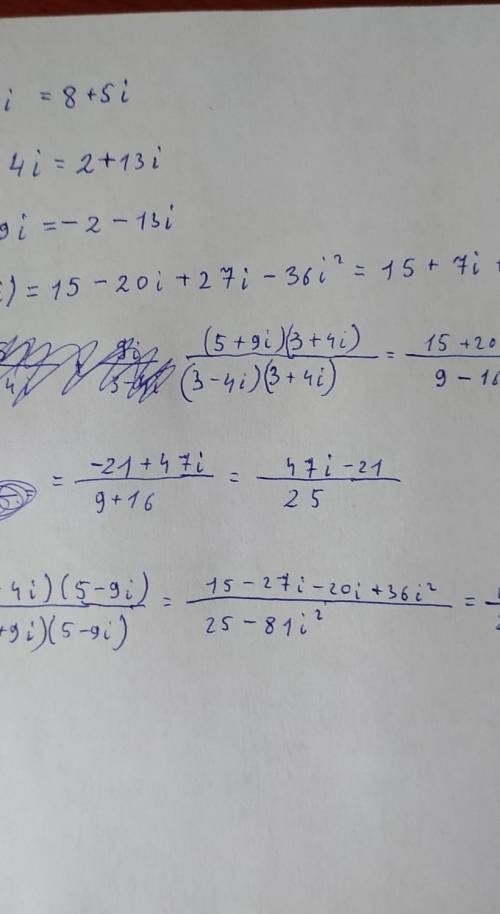 i = 8 + 5i
4i = 2 + 13i
9i = - 2 - 13i
) = 15 - 20i + 27i - 36i² = 15 + 7i +
(5 + 9i)(3 + 4i) / (3 - 4i)(3 + 4i) = 15 + 20 / 9 - 16
= -21 + 47i / 9 + 16 = 47i - 21 / 25
4i)(5 - 9i) / +9i)(5 - 9i) = 15 - 27i - 20i + 36i² / 25 - 81i² =